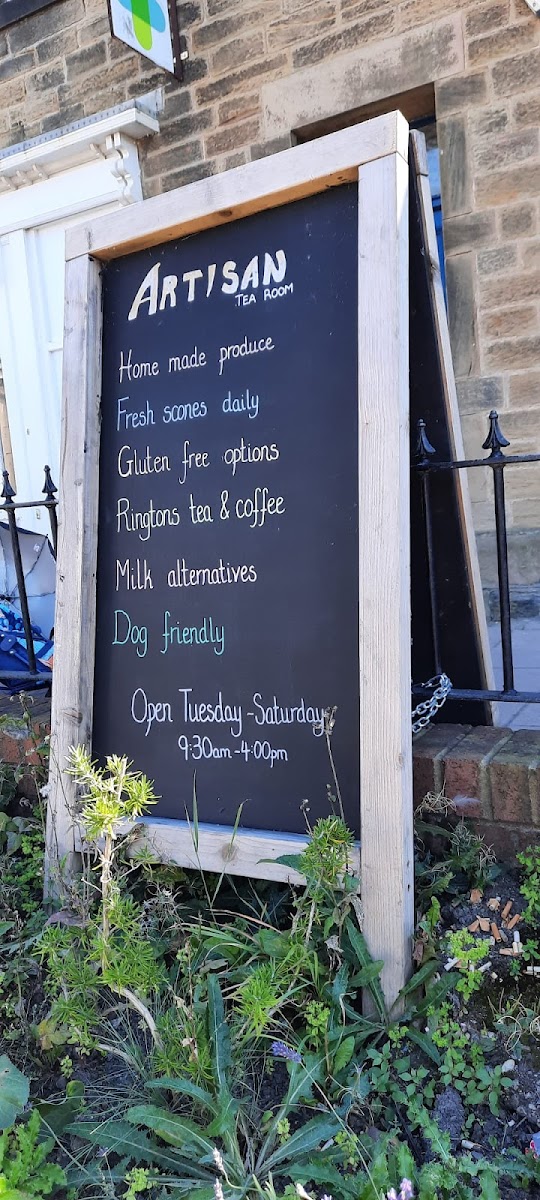 ARTISAN
TEA ROOM
Home made produce
Fresh scones daily
Gluten free options
Ringtons tea & coffee
Milk alternatives
Dog friendly
Open Tuesday - Saturday
9:30am - 4:00pm